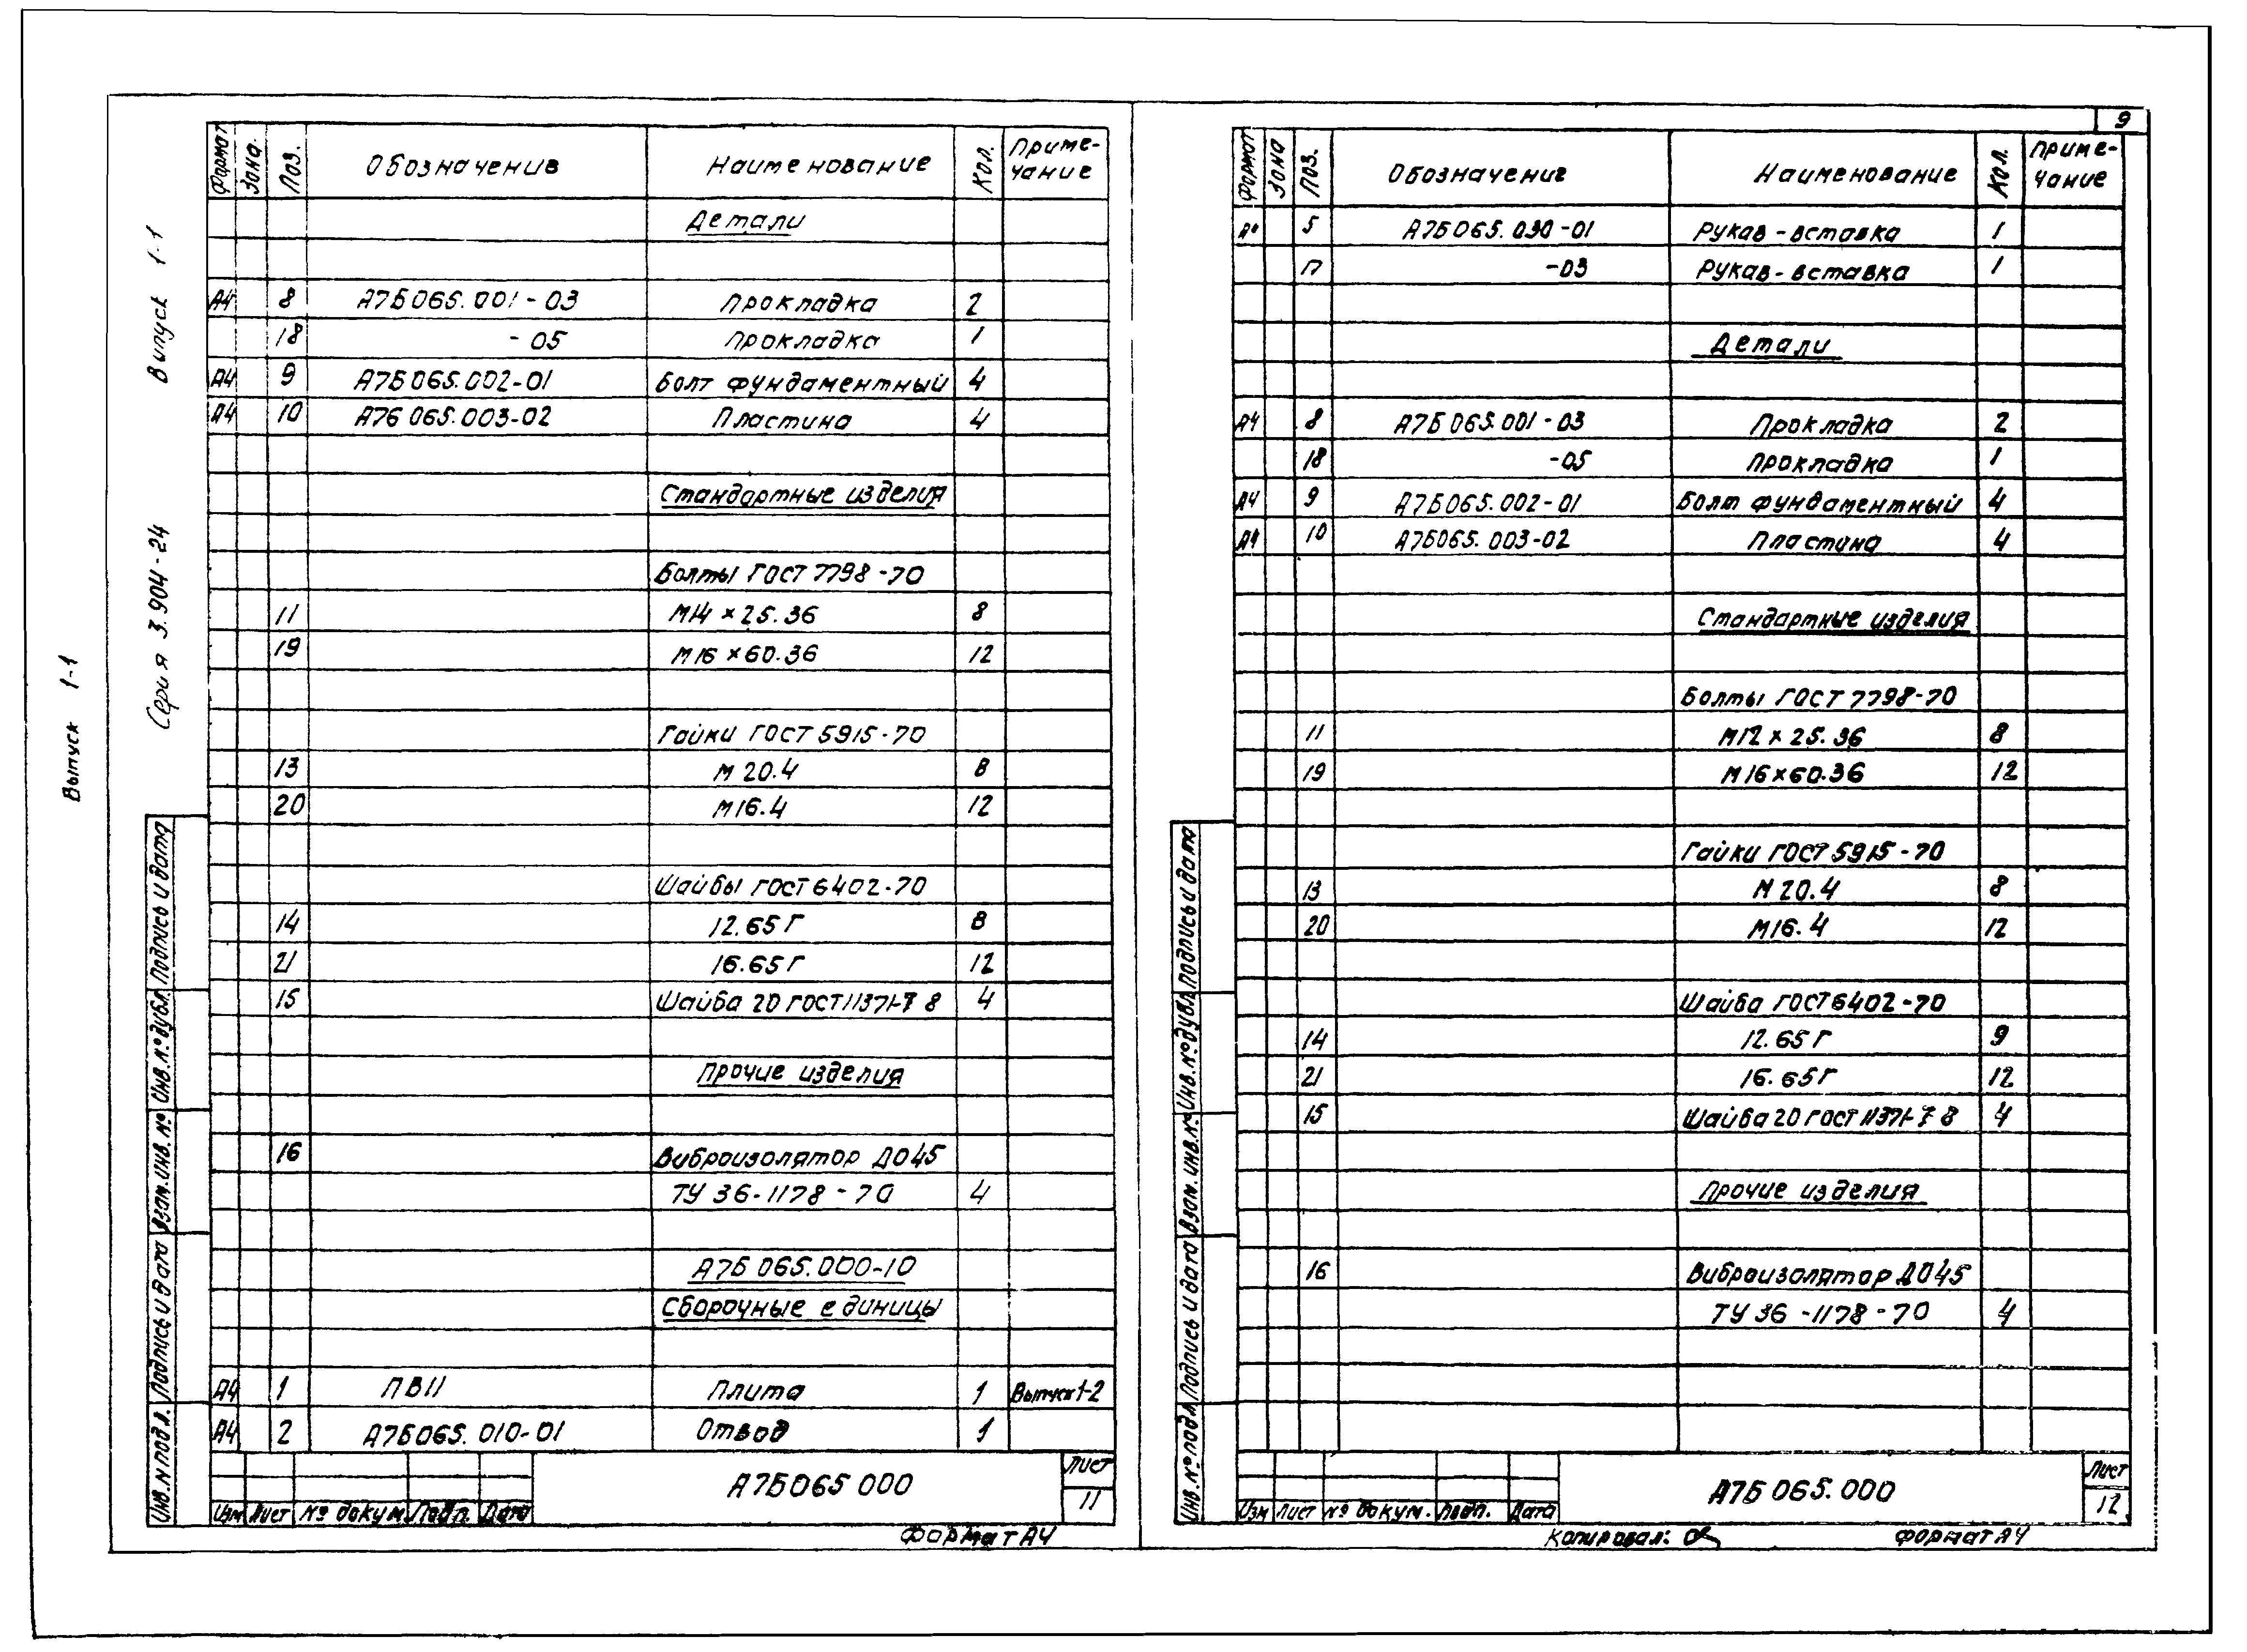 Выпуск 1-1
Серия 3.904-24 Випуск 1-1
Формат Зона. Поз. Обозначение Наименование Кол. Приме-
чание
Детали
А4 8 А7Б065.001-03 Прокладка 2
18 -05 Прокладка 1
А4 9 А7Б065.002-01 Болт фундаментный 4
А4 10 А7Б065.003-02 Пластина 4
Стандартные изделия
Болты ГОСТ 7798-70
11 М14×25.36 8
19 М16×60.36 12
Гайки ГОСТ 5915-70
13 М20.4 8
20 М16.4 12
Шайбы ГОСТ 6402-70
14 12.65Г 8
21 16.65Г 12
15 Шайба 20 ГОСТ 11371-78 4
Прочие изделия
16 Виброизолятор ДО45
ТУ 36-1178-70 4
А7Б065.000-10
Сборочные единицы
А4 1 ПВ11 Плита 1 Выпуск 1-2
А4 2 А7Б065.010-01 Отвод 1
Инв. N подл. Подпись и дата Взам. инв. № Инв. № дубл. Подпись и дата
Изм Лист № докум Подп. Дата
А7Б065 000
Лист
11
Формат А4
9
Формат Зона Поз. Обозначение Наименование Кол. Приме-
чание
А4 5 А7Б065.030-01 Рукав-вставка 1
17 -03 Рукав-вставка 1
Детали
А4 8 А7Б065.001-03 Прокладка 2
18 -05 Прокладка 1
А4 9 А7Б065.002-01 Болт фундаментный 4
А4 10 А7Б065.003-02 Пластина 4
Стандартные изделия
Болты ГОСТ 7798-70
11 М12×25.36 8
19 М16×60.36 12
Гайки ГОСТ 5915-70
13 М20.4 8
20 М16.4 12
Шайба ГОСТ 6402-70
14 12.65Г 9
21 16.65Г 12
15 Шайба 20 ГОСТ 11371-78 4
Прочие изделия
16 Виброизолятор ДО45
ТУ 36-1178-70 4
Инв. № подл Подпись и дата Взам. инв. № Инв. № дубл Подпись и дата
Изм Лист № докум. Подп. Дата
А7Б065.000
Лист
12
Копировал:
Формат А4